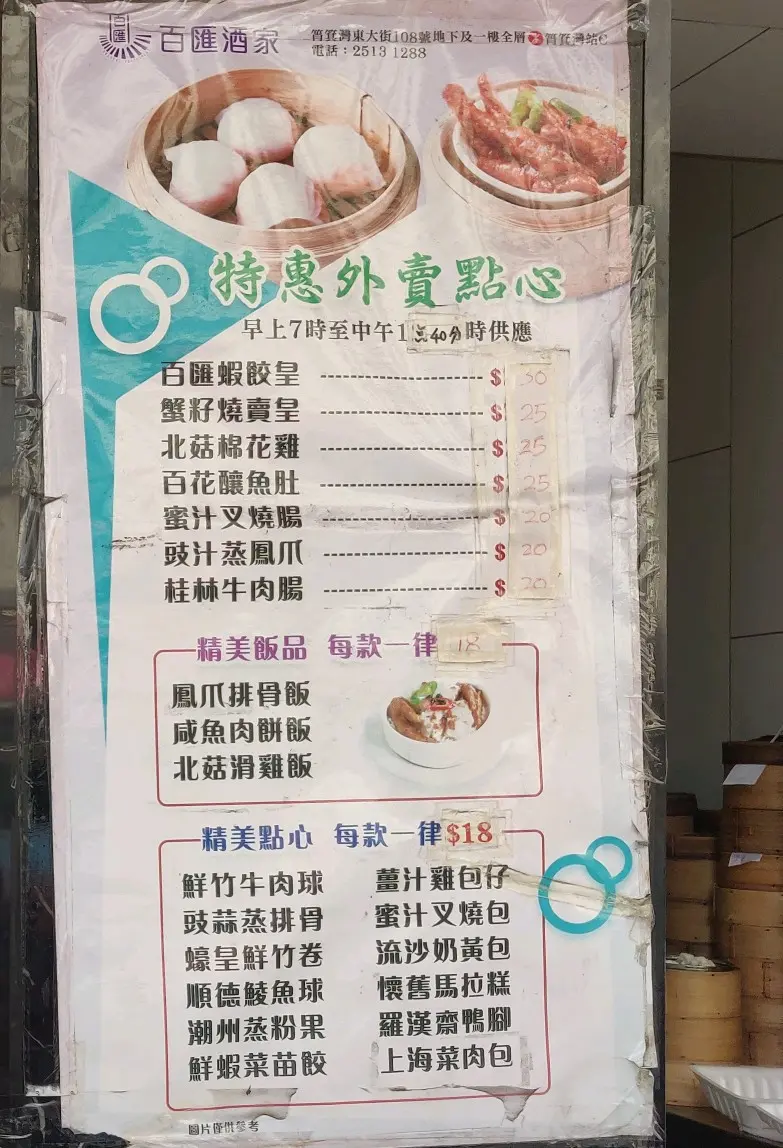 百匯
百匯酒家
筲箕灣東大街108號地下及一樓全層 筲箕灣站C
電話：2513 1288
特惠外賣點心
早上7時至中午1點40分時供應
百匯蝦餃皇 $ 30
蟹籽燒賣皇 $ 25
北菇棉花雞 $ 25
百花釀魚肚 $ 25
蜜汁叉燒腸 $ 20
豉汁蒸鳳爪 $ 20
桂林牛肉腸 $ 20
精美飯品 每款一律 18
鳳爪排骨飯
咸魚肉餅飯
北菇滑雞飯
精美點心 每款一律$18
鮮竹牛肉球 薑汁雞包仔
豉蒜蒸排骨 蜜汁叉燒包
蠔皇鮮竹卷 流沙奶黃包
順德鯪魚球 懷舊馬拉糕
潮州蒸粉果 羅漢齋鴨腳
鮮蝦菜苗餃 上海菜肉包
圖片僅供參考